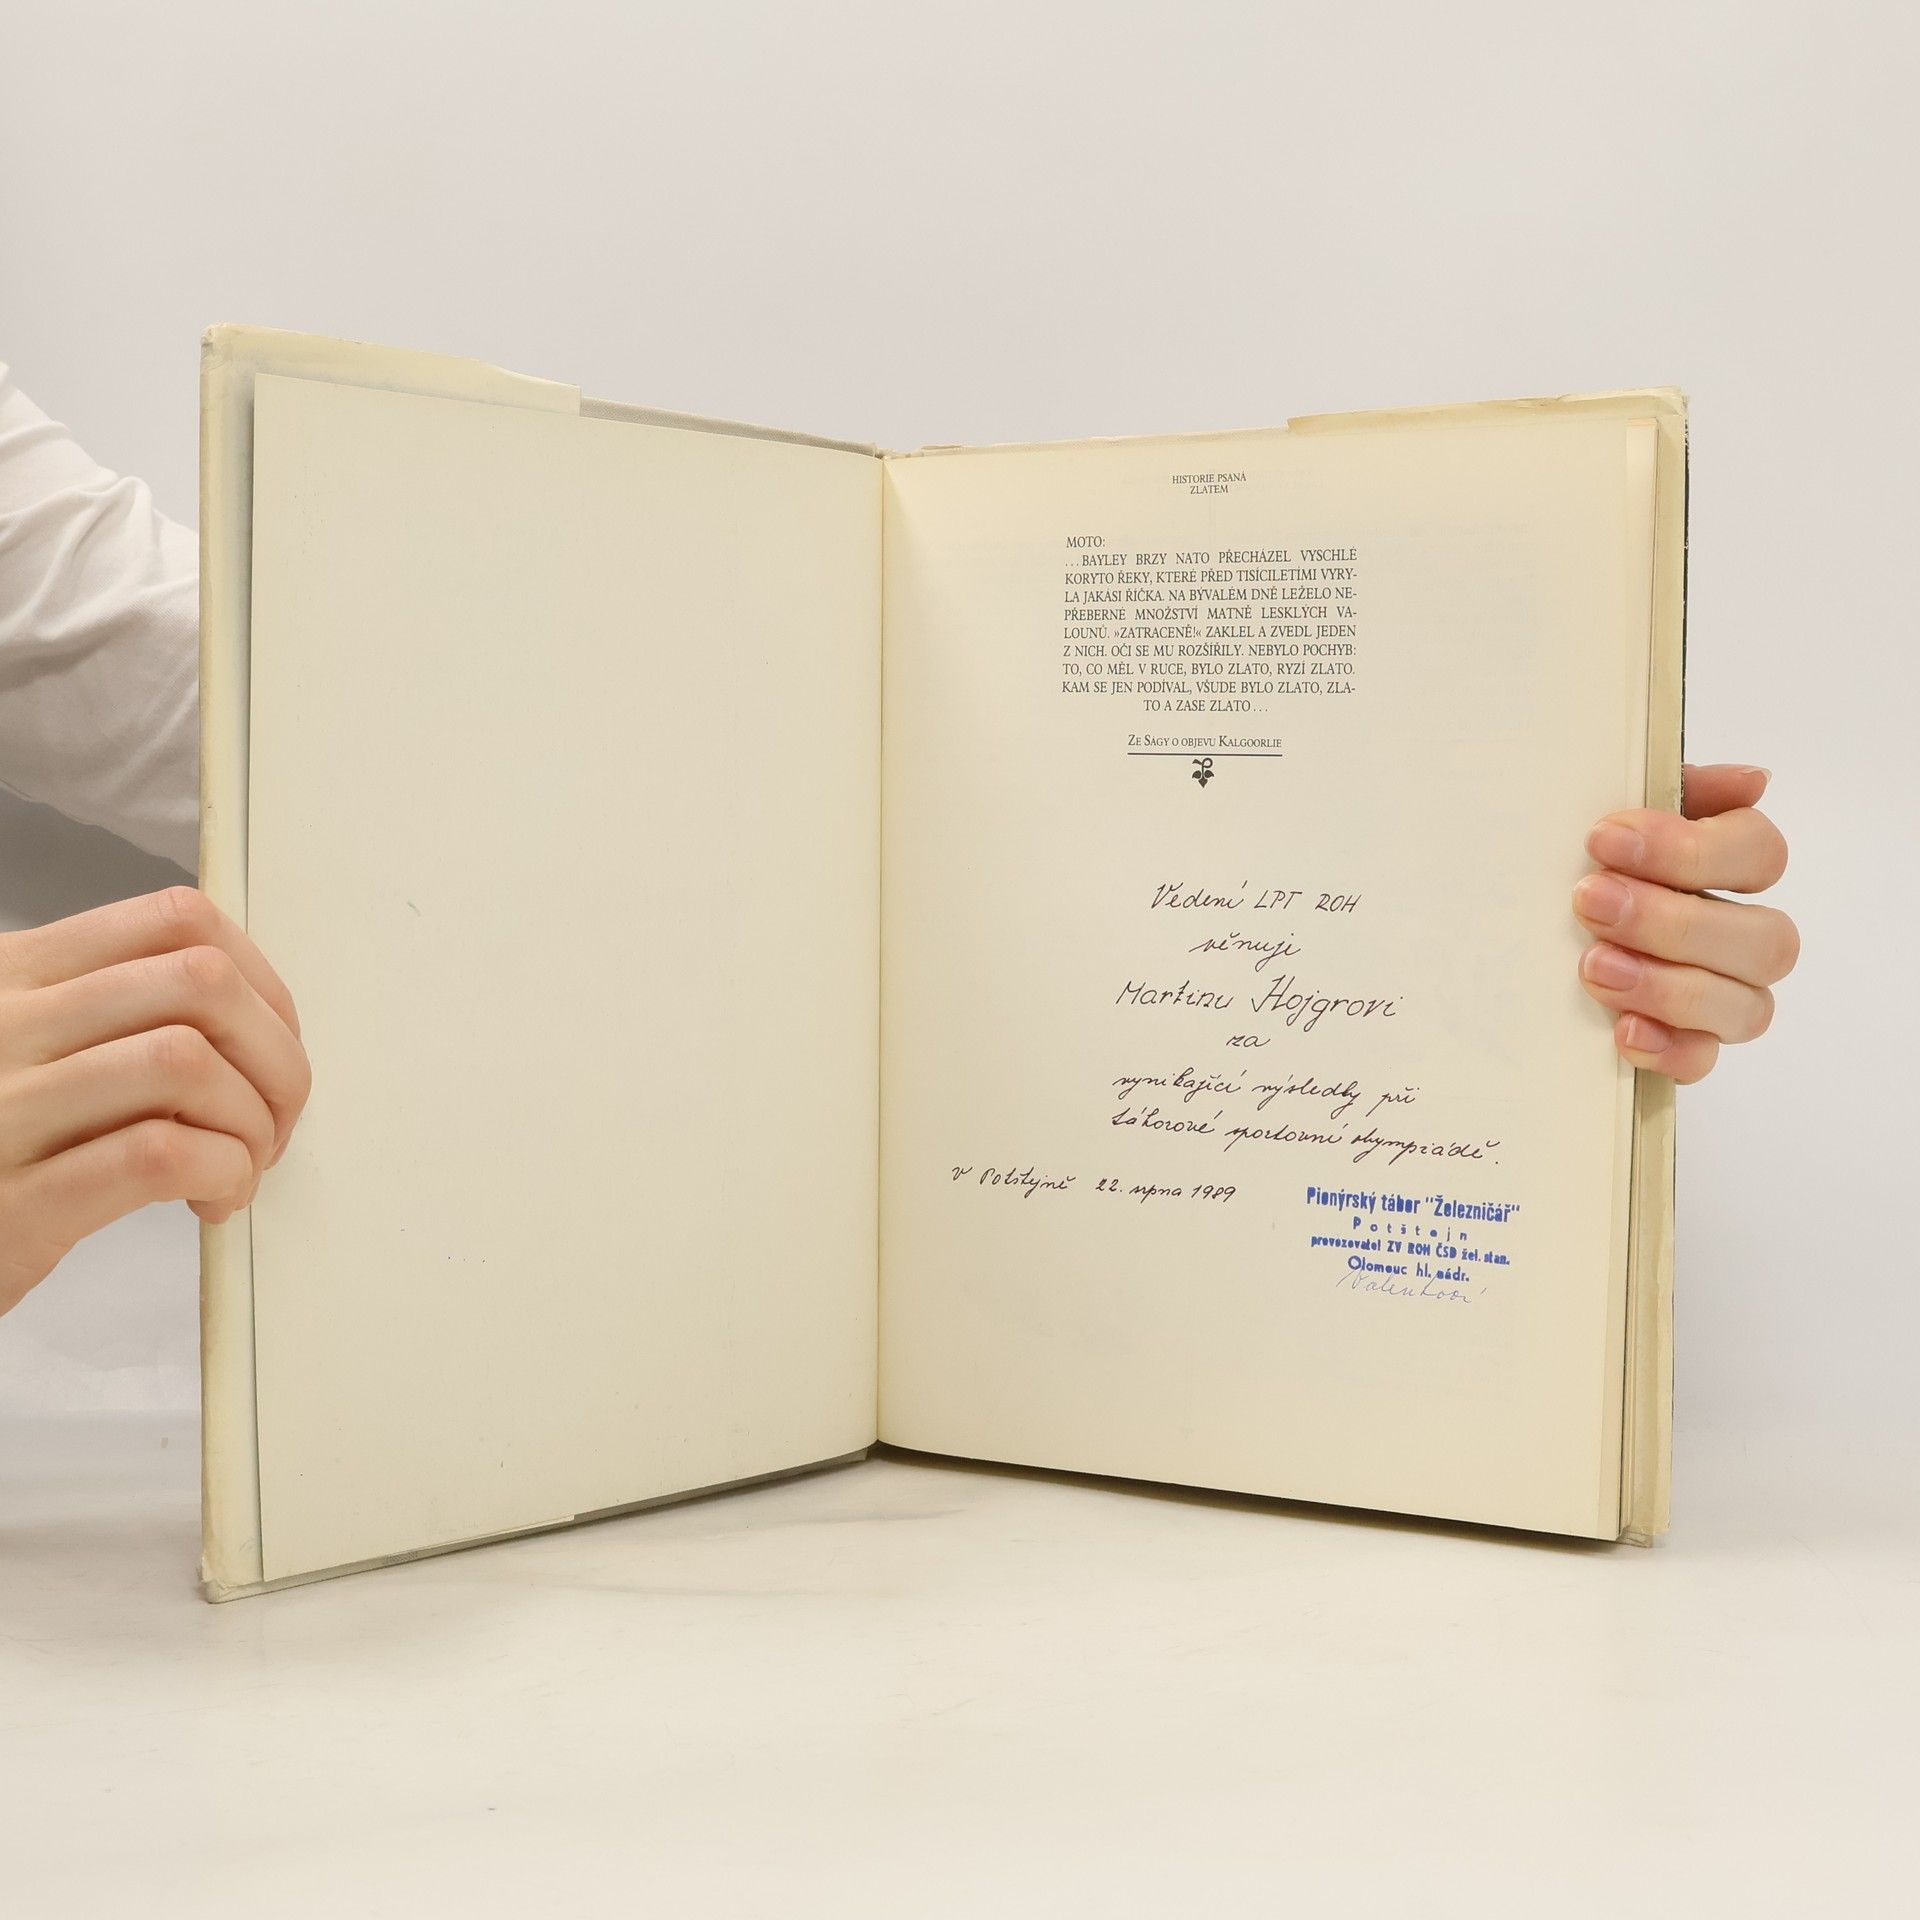 HISTORIE PSANÁ
ZLATEM
MOTO:
...BAYLEY BRZY NATO PŘECHÁZEL VYSCHLÉ
KORYTO ŘEKY, KTERÉ PŘED TISÍCILETÍMI VYRY-
LA JAKÁSI ŘÍČKA. NA BÝVALÉM DNĚ LEŽELO NE-
PŘEBERNÉ MNOŽSTVÍ MATNĚ LESKLÝCH VA-
LOUNŮ. »ZATRACENĚ!« ZAKLEL A ZVEDL JEDEN
Z NICH. OČI SE MU ROZŠÍŘILY. NEBYLO POCHYB:
TO, CO MĚL V RUCE, BYLO ZLATO, RYZÍ ZLATO.
KAM SE JEN PODÍVAL, VŠUDE BYLO ZLATO, ZLA-
TO A ZASE ZLATO...
ZE SÁGY O OBJEVU KALGOORLIE
Vedení LPT ROH
věnuje
Martinu Hojgrovi
za
vynikající výsledky při
táborové sportovní olympiádě.
V Potštejně 22. srpna 1989
Pionýrský tábor "Železničář"
Potštejn
provozovatel ZV ROH ČSD žel. stan.
Olomouc hl. nádr.